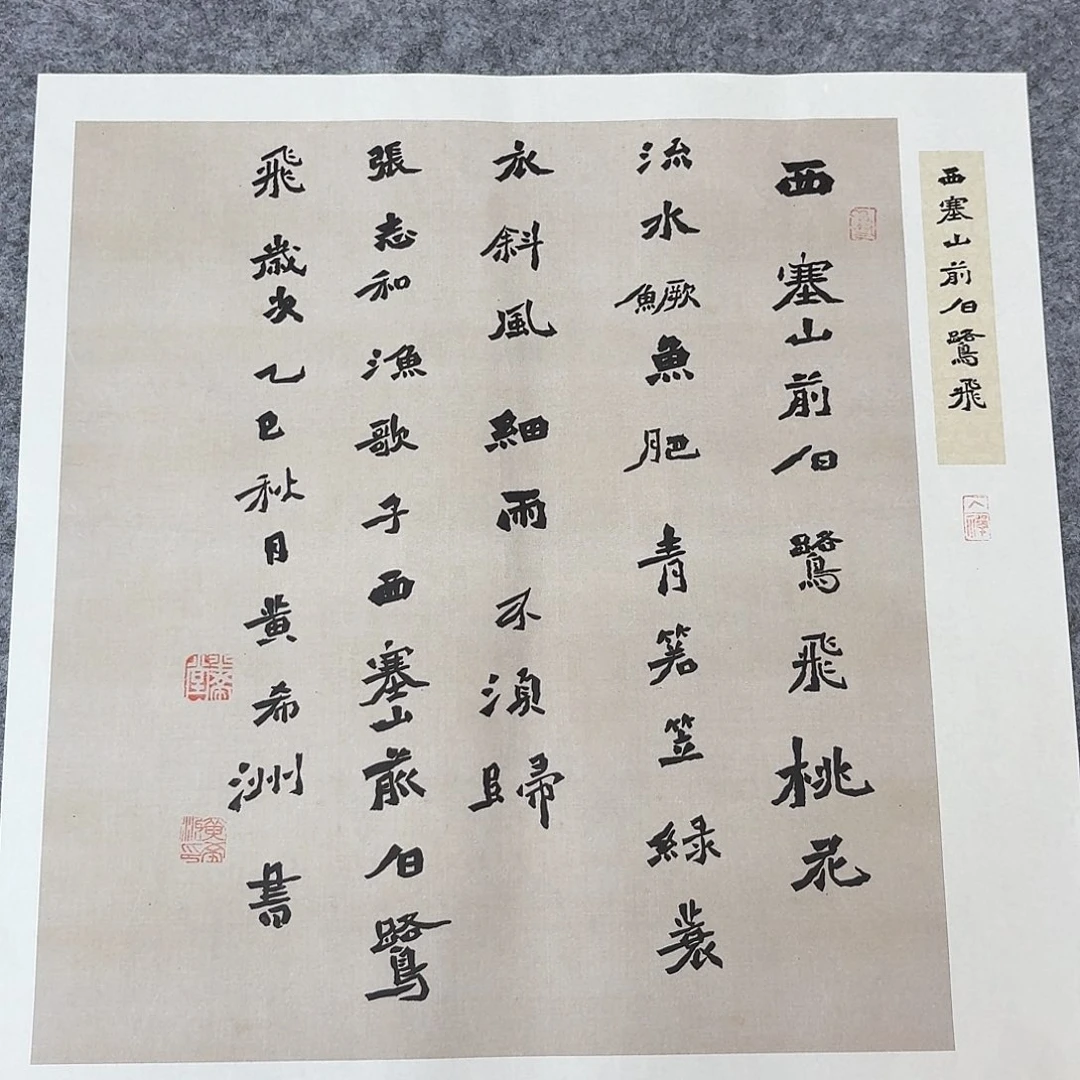 西塞山前白鷺飛
西塞山前白鷺飛桃花
流水鱖魚肥青箬笠綠蓑
衣斜風細雨不須歸
張志和漁歌子西塞山前白鷺
飛歲次乙巳秋月黃希洲書